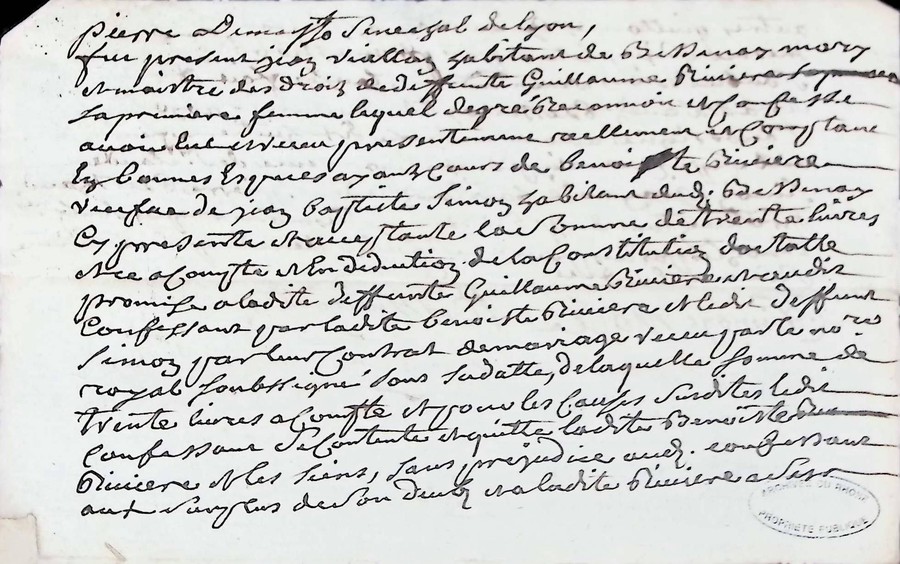 pierre Demasso Seneschal de lyon,
fut present jean viallon habitant de Bessenay mary
et maistre des droitz de deffunte Guillaume Riviere
sa premiere femme lequel de gre Reconnoit et Confesse
avoir Eut et receu presentement reellement et Comptant
En bonnes Especes ayant Cours de benoiste Riviere
veufve de jean baptiste Simon habitant dud. Bessenay
Cy presente et acceptante la Somme de trente livres
et ce a Compte et En deduction de la Constitution dostalle
promise a ladite deffunte Guillaume Riviere et audit
Confessant par ladite benoiste Riviere et ledit deffunt
Simon par leur Contrat de mariage receu par le no.re
royal soubssigné sous sa datte, de laquelle somme de
trente livres a Compte et pour les Causes susdites ledit
Confessant Se Contente et quitte ladite Benoiste
Riviere et les siens, sans prejudice aud. confessant
au surplus de son deub et a ladite Riviere a ses
ARCHIVES DU RHONE
PROPRIETE PUBLIQUE